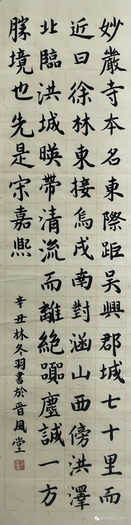 妙嚴寺本名東際距吳興郡城七十里而
近曰徐林東接烏戍南對涵山西傍洪澤
北臨洪城暎帶清流而離絕囂塵誠一方
勝境也先是宋嘉熙
辛丑林冬羽書於晉風堂